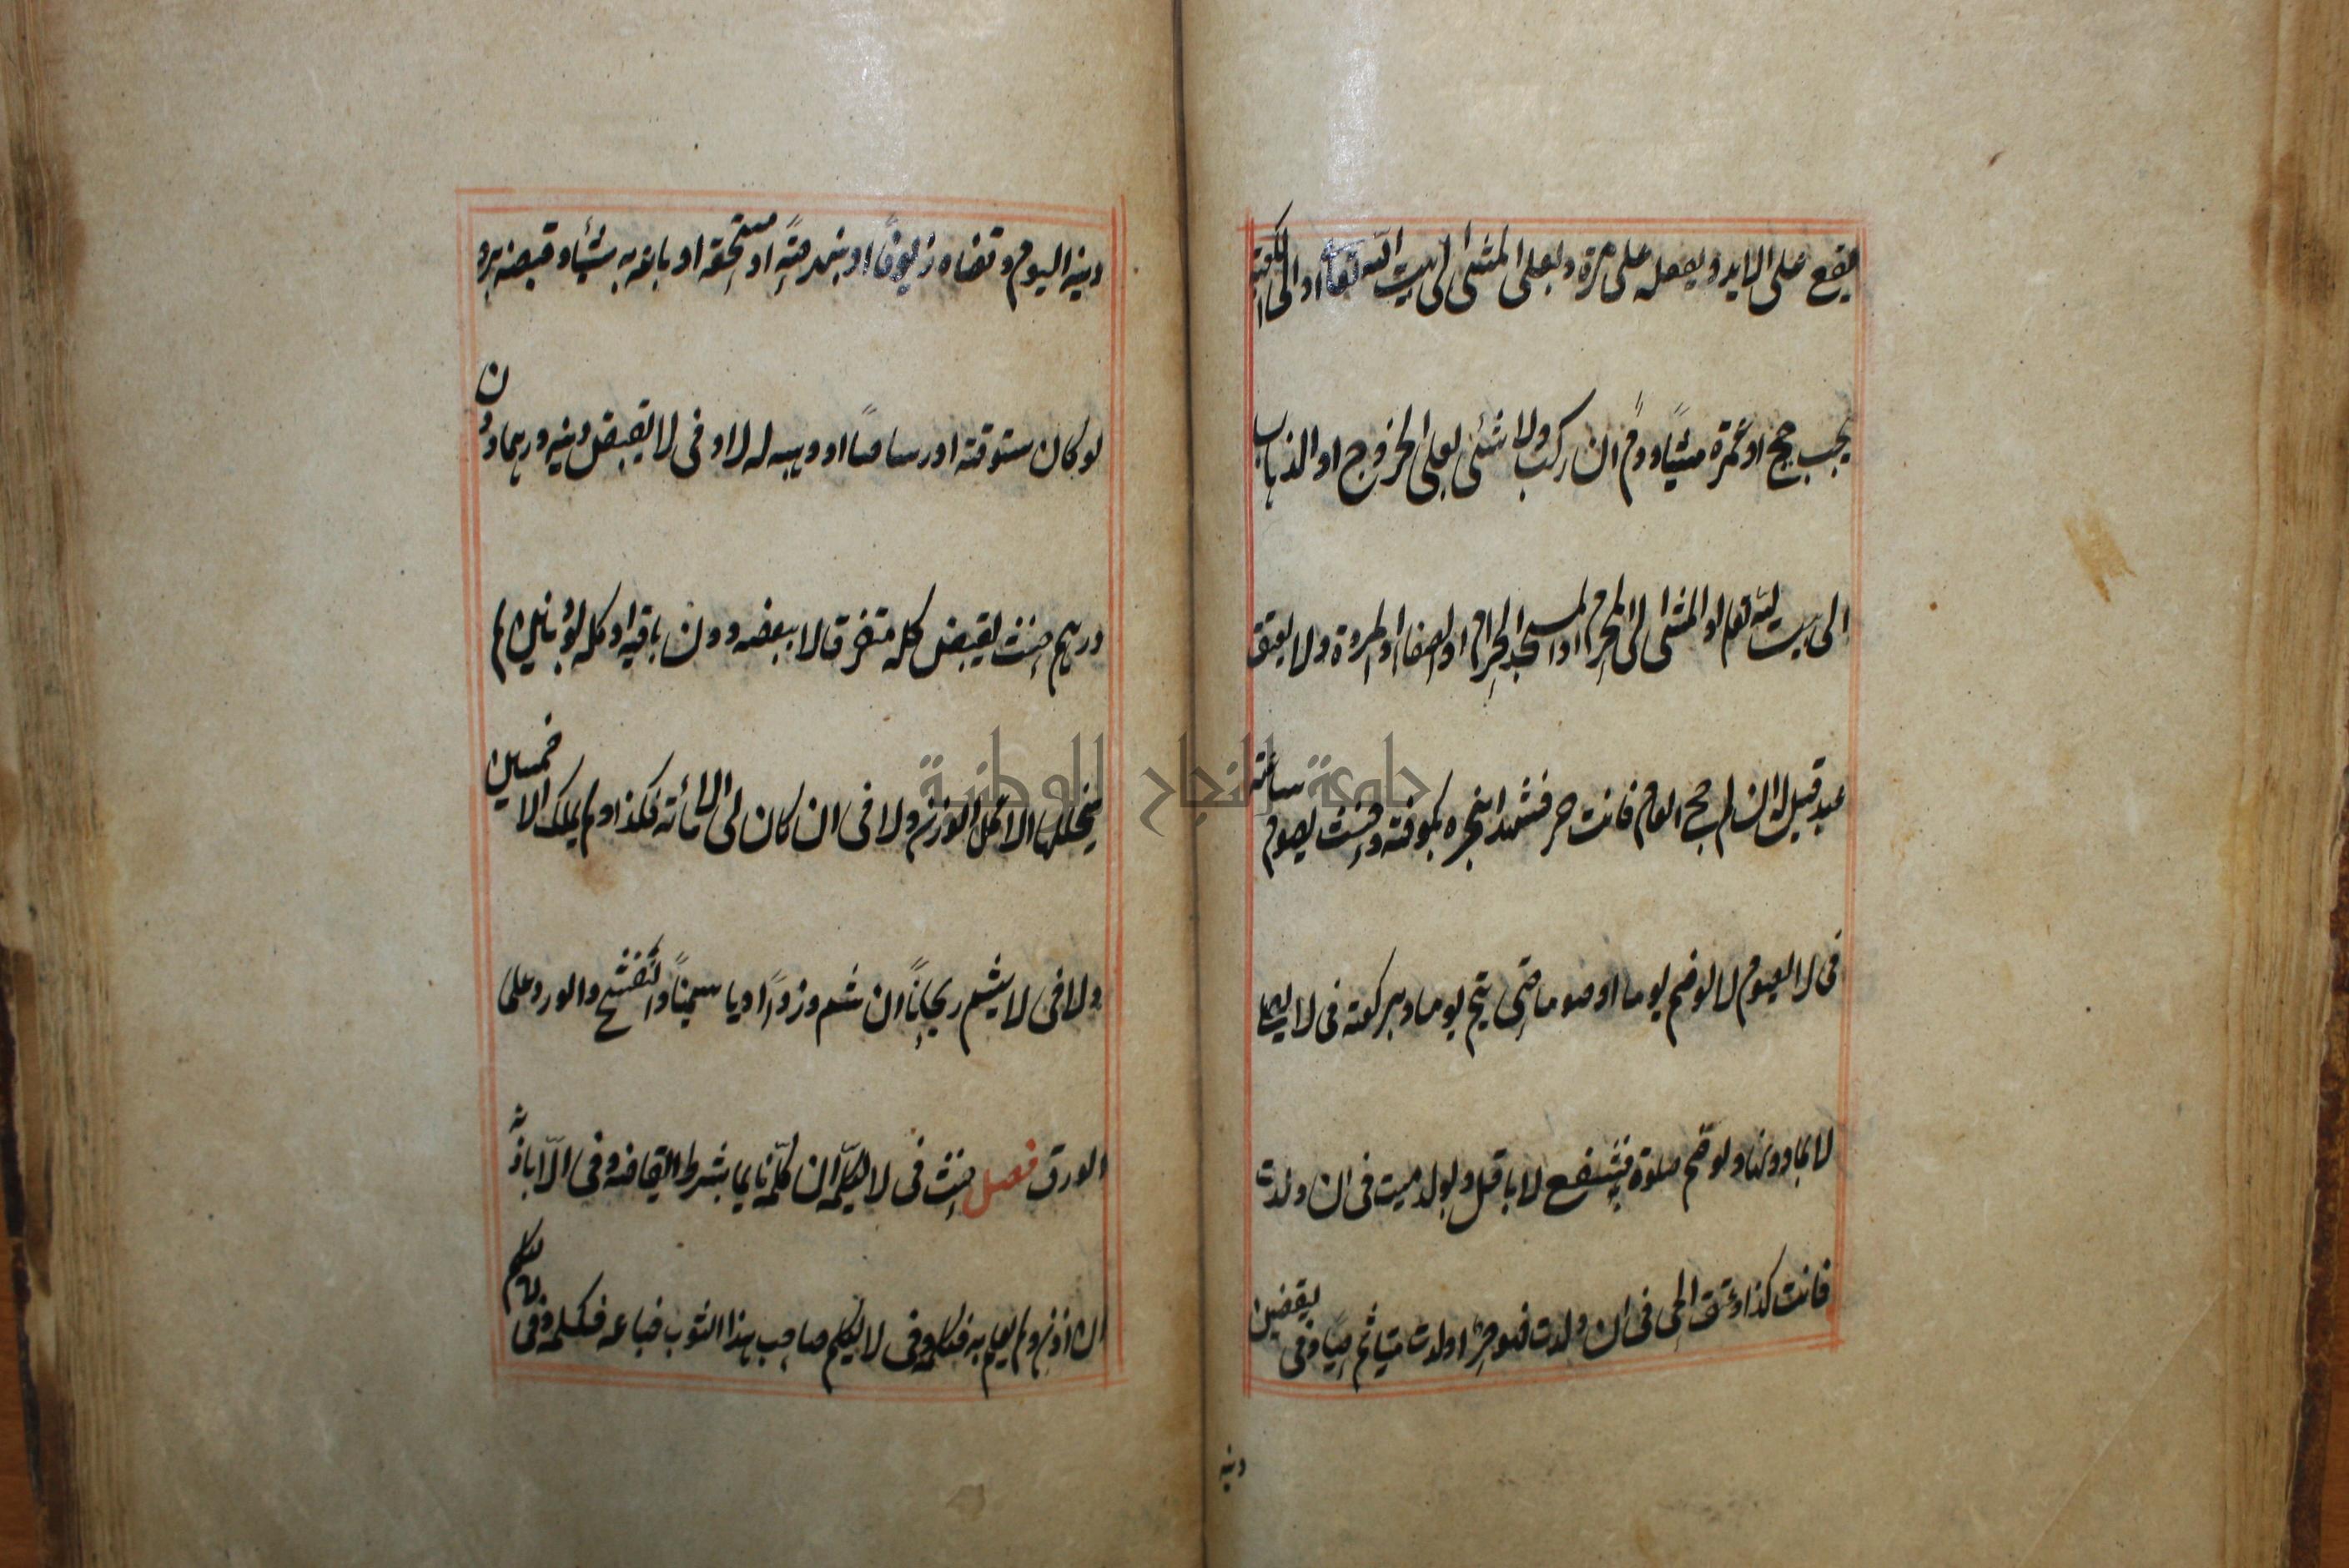 يقع على الابد ويفعله على مرة وبعلى المشى الى بيت الله تعا او الى الكعبة
يجب حج او عمرة مشيًا ودم ان ركب ولا شئى بعلى الخروج او الذهاب
الى بيت الله تعا او المشى الى الحرم او المسجد الحرام او الصفا او المروة ولا يعتق
عبد قيل له ان لم احج العام فانت حر فشهدا بنحره بكوفة وحنث بصوم ساعة
فى لا يصوم لا لو ضم يوما او صوما حتى يتم يوما وبركعة فى لا يصلى
لا بما دونها ولو ضم صلوة فبشفع لا باقل وبولد ميت فى ان ولدت
فانت كذا وعتق الحى فى ان ولدت فهو حرّ ا ولدت ميتا ثم حيًا وفى ليقضين
دينه
دينه اليوم وقضاه زيوفًا او بنهرجةً او مستحقة او باعه به شيئًا وقبضه بر و
لو كان ستوقة او رصاصًا او وهبه له لا وفى لا يقبض دينه درهما دون
درهم حنث بقبض كله متفرقا لا ببعضه دون باقيه او كله بوزنين لم
يتخللهما الا عمل الوزن ولا فى ان كان لى الا مائة فكذا ولم يملك الا خمسين
ولا فى لا يشم ريحانًا ان شم وردًا او ياسمينًا والبنفسج والورد على
الورق فصل حنث فى لا يكلمه ان كلّمه نايما بشرط ايقاظه وفى الّا باذنه
ان اذن ولم يعلم به فكلمه وفى لا يكلم صاحب هذا الثوب فباعه فكلمه وفى
جامعة النجاح الوطنية